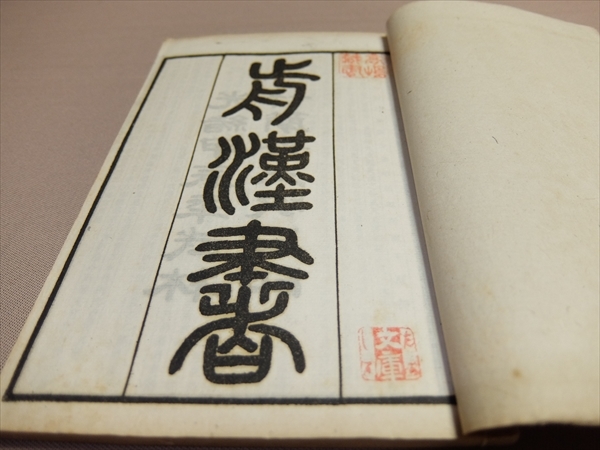 前漢書
文庫